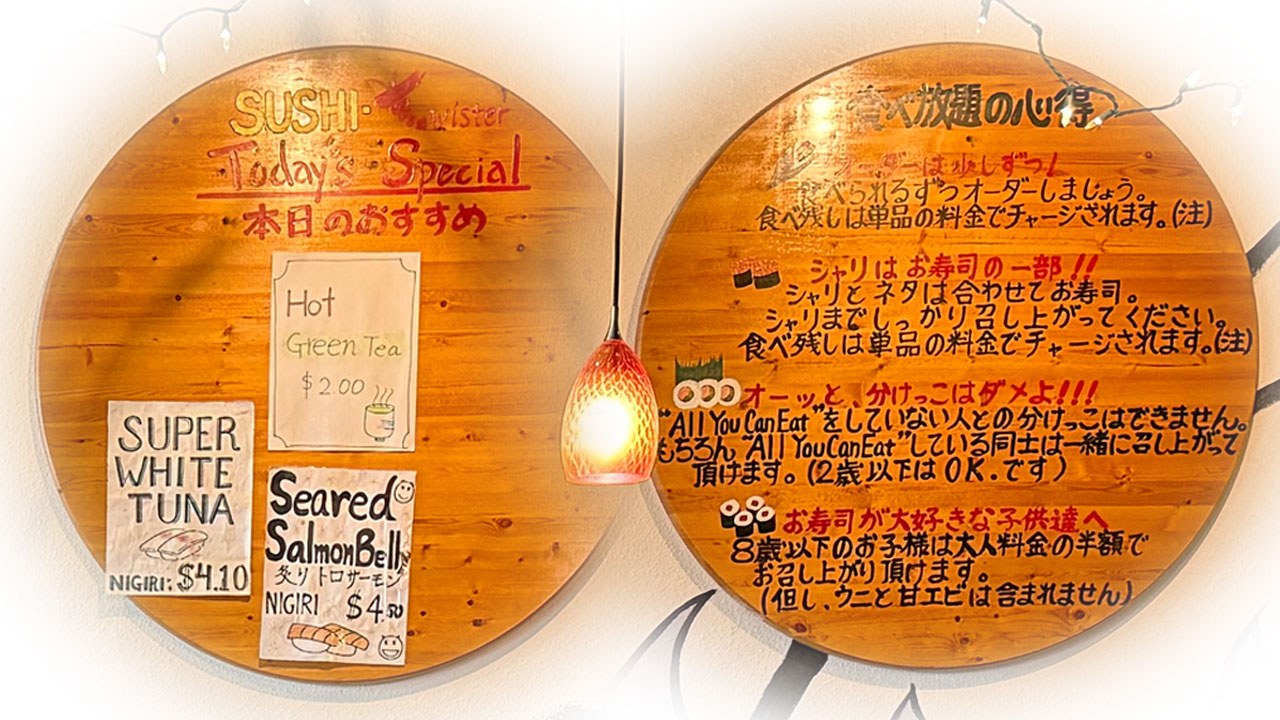 SUSHI・Twister
Today's Special
本日のおすすめ
Hot
Green Tea
$2.00
SUPER
WHITE
TUNA
NIGIRI: $4.10
Seared
Salmon Belly
炙りトロサーモン
NIGIRI $4.50
食べ放題の心得
オーダーは少しずつ!
食べられるずつオーダーしましょう。
食べ残しは単品の料金でチャージされます。(注)
シャリはお寿司の一部!!
シャリとネタは合わせてお寿司。
シャリまでしっかり召し上がってください。
食べ残しは単品の料金でチャージされます。(注)
オーッと、分けっこはダメよ!!!
"All You Can Eat"をしていない人との分けっこはできません。
もちろん"All You Can Eat"している同士は一緒に召し上がって
頂けます。(2歳以下はOK.です)
お寿司が大好きな子供達へ
8歳以下のお子様は大人料金の半額で
お召し上がり頂けます。
(但し、ウニと甘エビは含まれません)